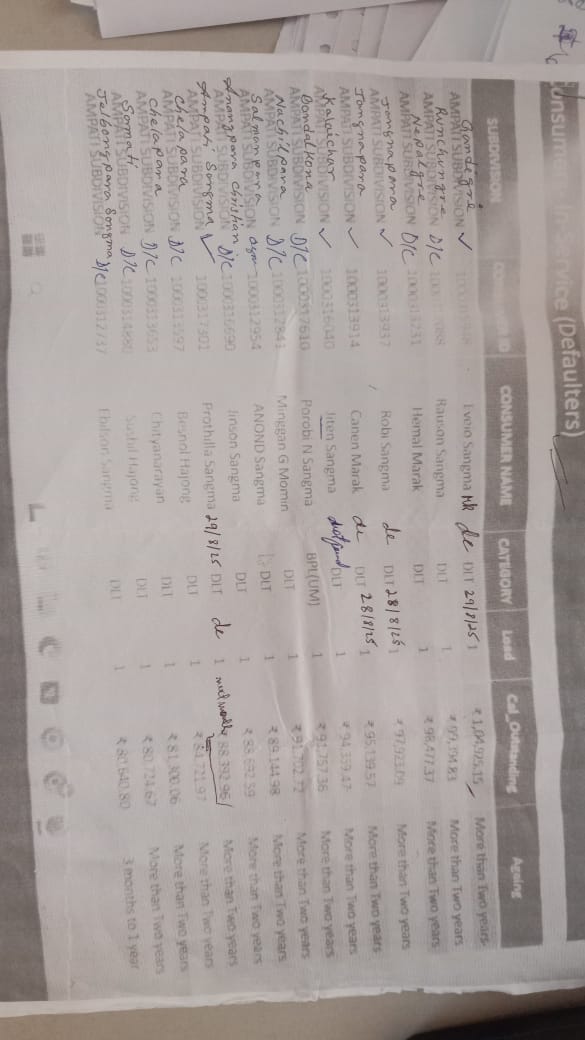 (Defaulters)
SUBDIVISION CONSUMER NAME CATEGORY Load Cal_Outstanding Ageing
Gandégré
AMPATI SUBDIVISION ✓ Iveio Sangma Mk dc DLT 29/8/25 1 ₹ 1,04,925.15 More than Two years
AMPATI SUBDIVISION D/C Rauson Sangma DLT 1 More than Two years
Nepalgre
AMPATI SUBDIVISION D/C Hemal Marak DLT 1 ₹ 98,477.37 More than Two years
Jangnapara
AMPATI SUBDIVISION ✓ 1000313937 Robi Sangma dc DLT 28/8/25 1 ₹ 97,923.09 More than Two years
Jangnapara
AMPATI SUBDIVISION ✓ 1000313914 Canen Marak dc DLT 28/8/25 1 ₹ 95,139.57 More than Two years
Kalaichar
AMPATI SUBDIVISION ✓ 1000316040 Jiten Sangma DLT 1 ₹ 94,339.47 More than Two years
Dondalkona
AMPATI SUBDIVISION D/C 1000317610 Porobi N Sangma BPL(UM) 1 ₹ 91,757.36 More than Two years
Nachilpara
AMPATI SUBDIVISION D/C 1000312841 Minggan G Momin DLT 1 ₹ 91,702.72 More than Two years
Salmanpara
AMPATI SUBDIVISION 1000312954 ANOND Sangma DLT 1 ₹ 89,144.98 More than Two years
Anangpara Christian
AMPATI SUBDIVISION D/C 1000316690 Jinson Sangma DLT 1 ₹ 88,692.59 More than Two years
Ampati Songma
AMPATI SUBDIVISION ✓ 1000317301 Prothilla Sangma 29/8/25 DLT dc 1 88,392.96 More than Two years
Chelapara
AMPATI SUBDIVISION D/C 1000313597 Besnol Hajong DLT 1 ₹ 84,721.97 More than Two years
Chelapara
AMPATI SUBDIVISION D/C 1000313653 Chityanarayan DLT 1 ₹ 81,300.06 More than Two years
Somati
AMPATI SUBDIVISION D/C Sushil Hajong DLT 1 ₹ 80,724.67 More than Two years
Jelbongpara Songma
AMPATI SUBDIVISION D/C 1000312737 Ebilson Sangma DLT 1 ₹ 80,640.80 3 months to 1 year